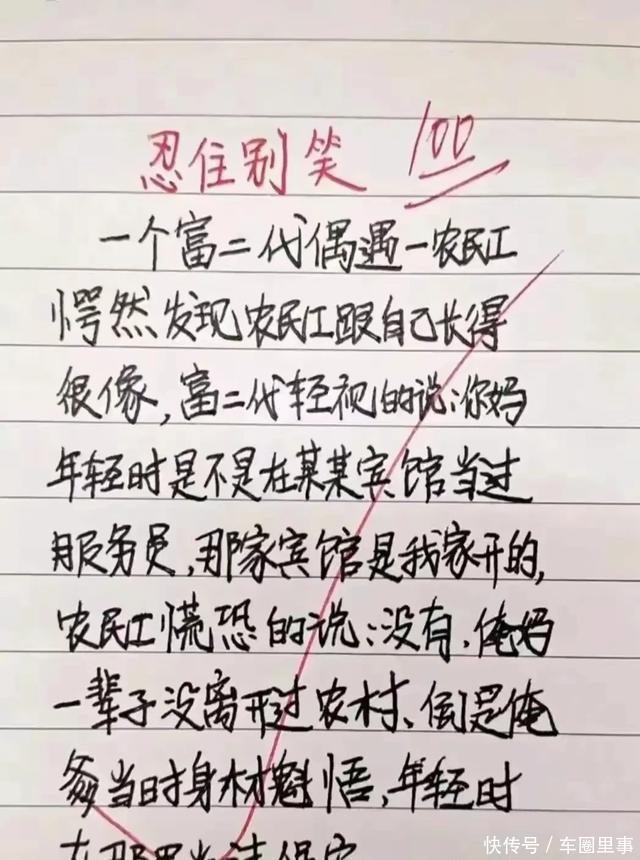 忍住别笑 100
一个富二代偶遇一农民工
愕然发现农民工跟自己长得
很像，富二代轻视的说：你妈
年轻时是不是在某某宾馆当过
服务员，那家宾馆是我家开的，
农民工慌恐的说：没有，俺妈
一辈子没离开过农村、倒是俺
爹当时身材魁悟，年轻时
快传号／车圈里事